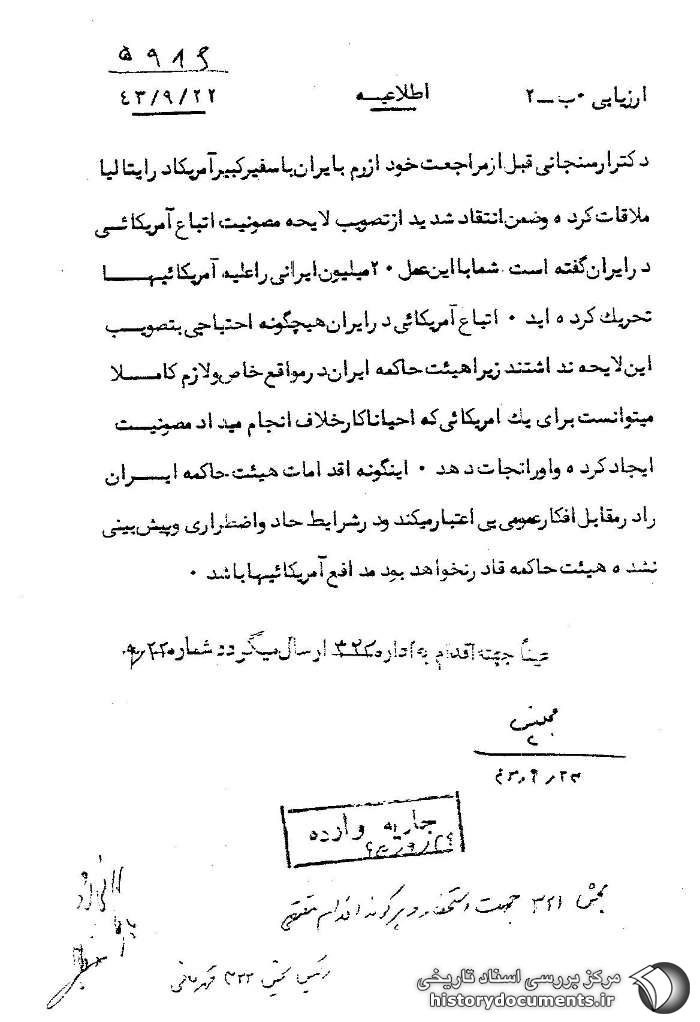 ۵۹۸۶
ارزیابی ۰ب ــ ۲ اطلاعیـــه ۴۳/۹/۲۲
دکتر ارسنجانی قبل از مراجعت خود از رم بایران با سفیر کبیر آمریکا در ایتالیا
ملاقات کرده و ضمن انتقاد شدید از تصویب لایحه مصونیت اتباع آمریکائـــی
در ایران گفته است شما با این عمل ۲۰ میلیون ایرانی را علیه آمریکائیهـــا
تحریك کرده اید ۰ اتباع آمریکائی در ایران هیچگونه احتیاجی بتصویـــب
این لایحه نداشتند زیرا هیئت حاکمه ایران در مواقع خاص و لازم کامـــلا
میتوانست برای یك امریکائی که احیانا کار خلاف انجام میداد مصونیـــت
ایجاد کرده و او را نجات دهد ۰ اینگونه اقدامات هیئت حاکمه ایـــران
را در مقابل افکار عمومی بی اعتبار میکند و در شرایط حاد و اضطراری و پیش بینی
نشده هیئت حاکمه قادر نخواهد بود مدافع آمریکائیها باشد ۰
عیناً جهته اقدام به اداره ۳۲۲ ارسال میگردد شماره
۴۳٫۹٫۲۳
جاریه وارده
بخش ۳۲۱ جهت استحضار و هرگونه اقدام مقتضی
رئیس بخش ۳۲۲ قهرمانی
مرکز بررسی اسناد تاریخی
historydocuments.ir